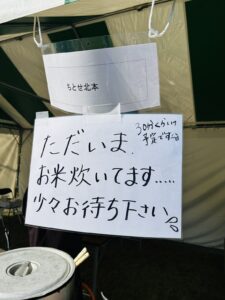 ちとせ北本
30分くらい
予定ですm
ただいま、
お米炊いてます.....
少々お待ち下さい